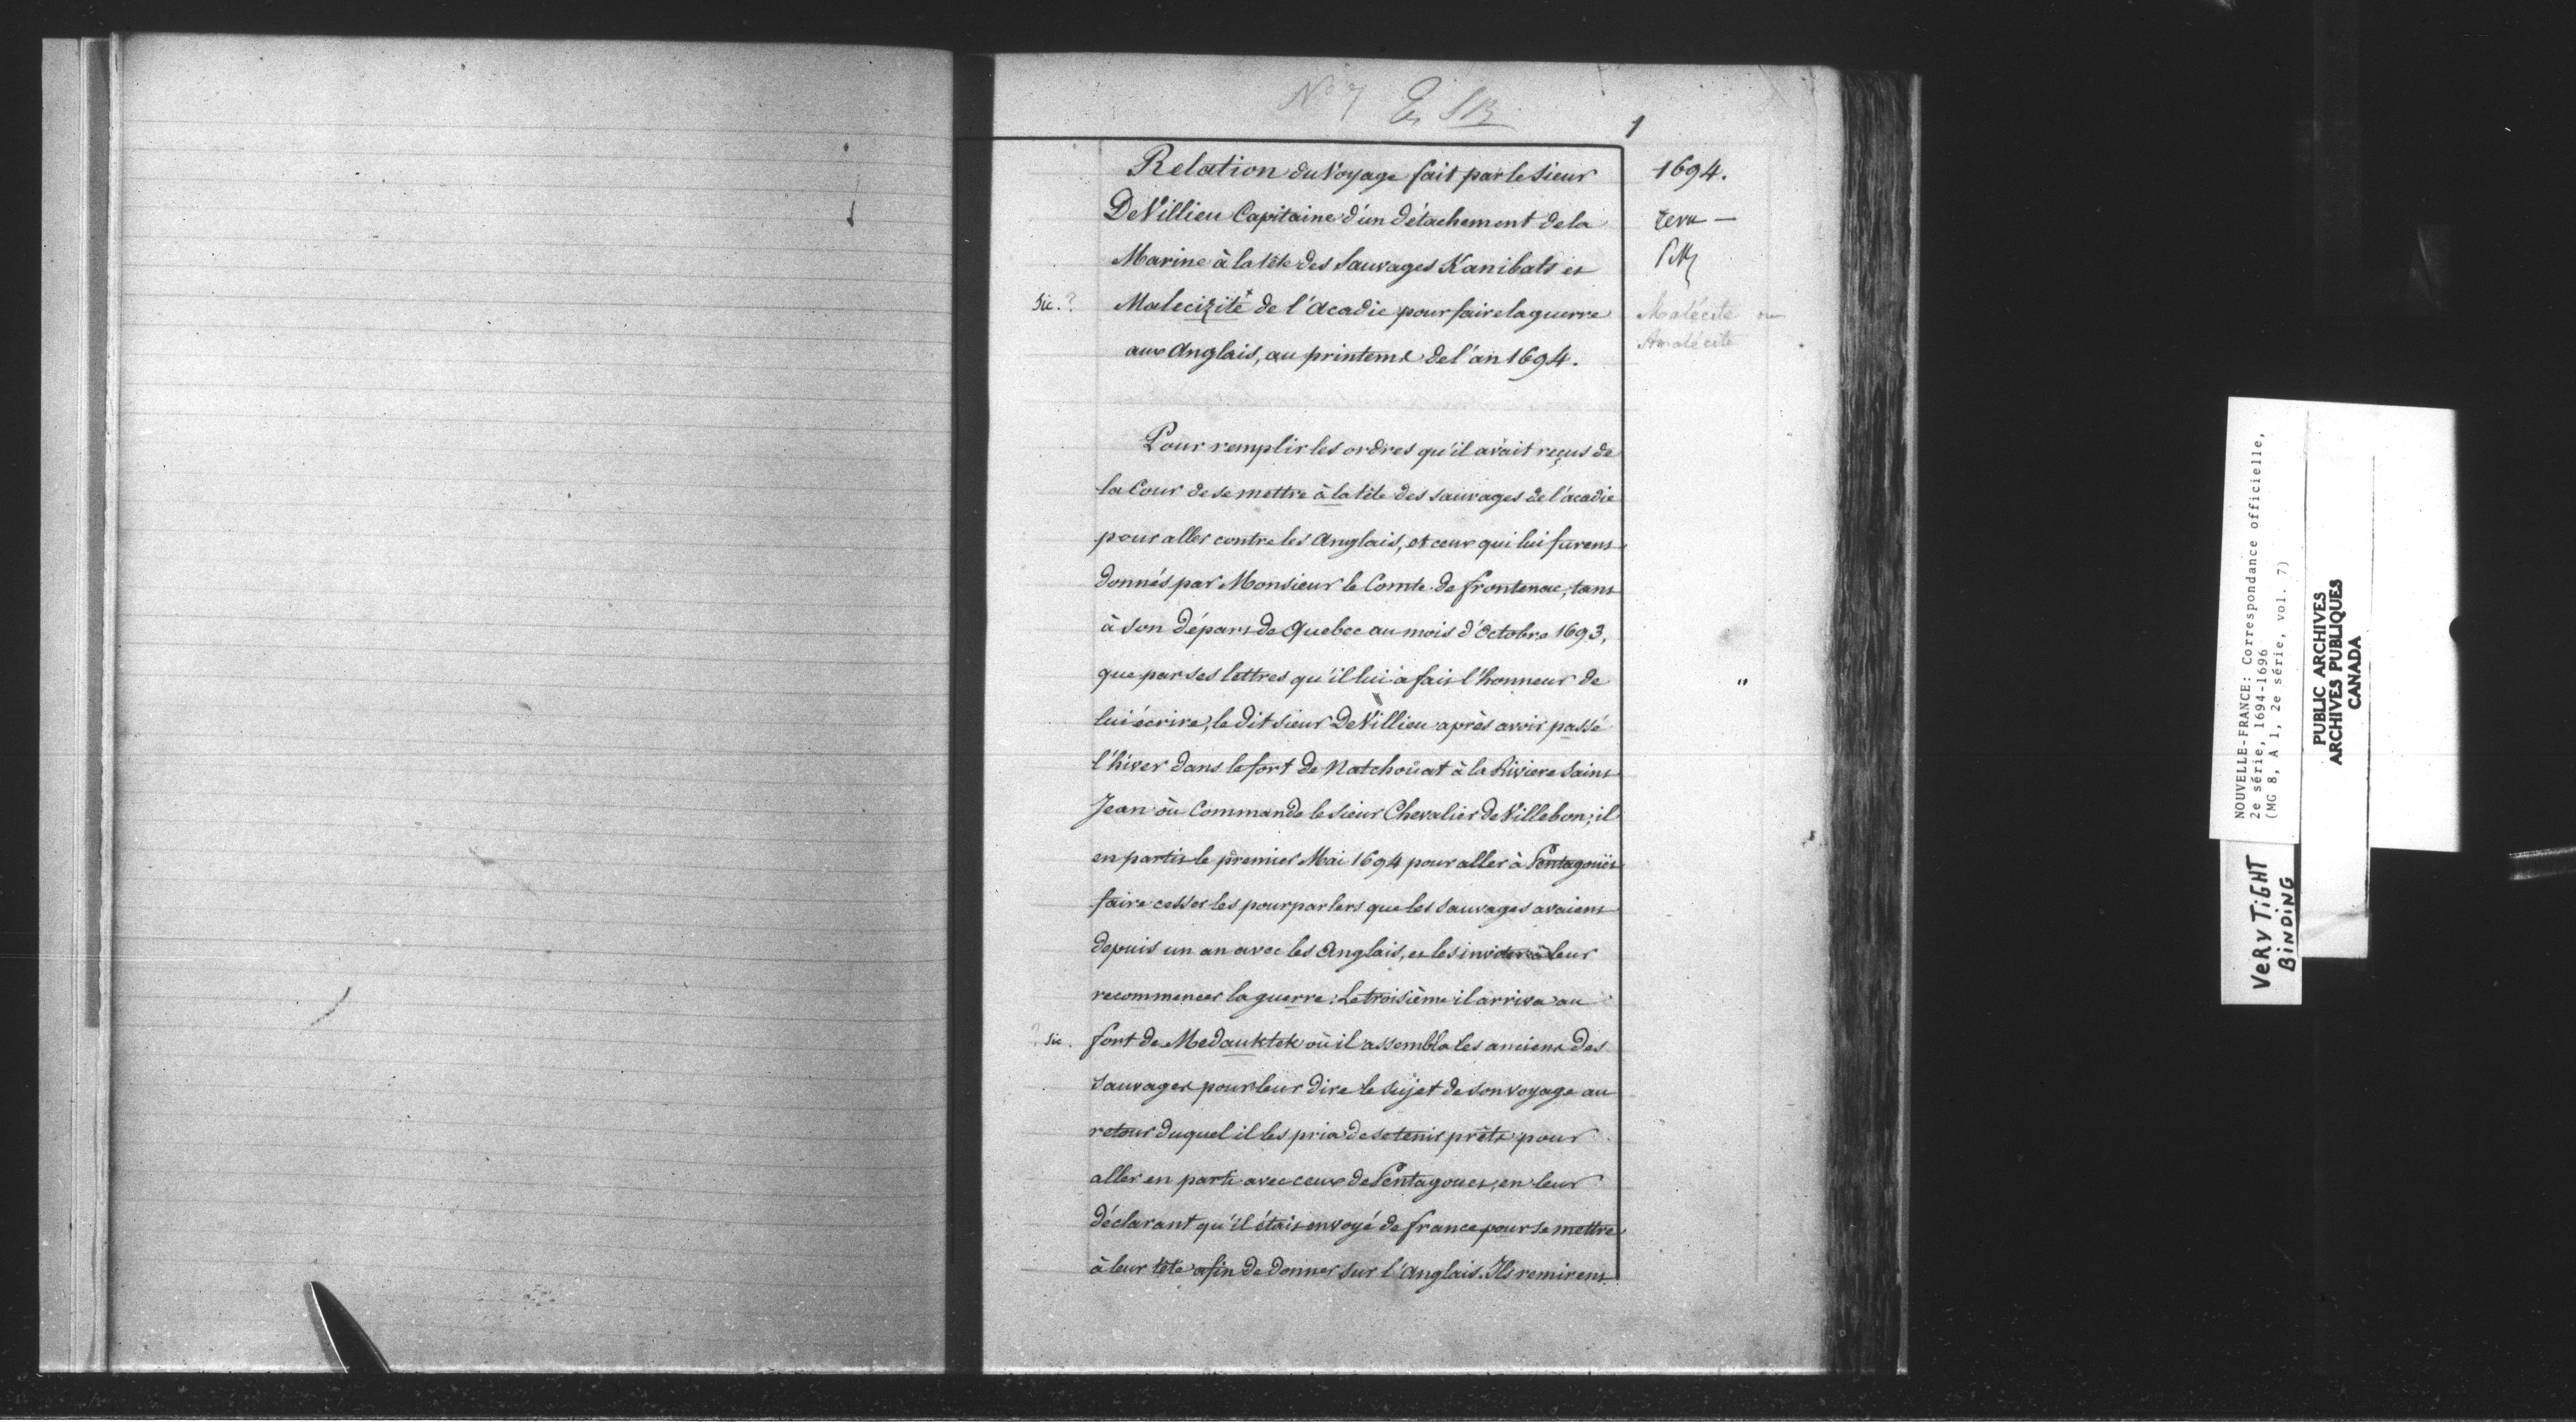 N° 7
1
Relation du Voyage fait par le Sieur
1694.
De Villieu Capitaine d'un détachement de la
revu —
Marine à la tête des Sauvages Kanibats et
Sic. ?
Malecizité + de l'Acadie pour faire la guerre
Malécite ou
Amalécite
aux Anglais, au printems de l'an 1694.
Pour remplir les ordres qu'il avait reçus de
la Cour de se mettre à la tête des sauvages de l'acadie
pour aller contre les Anglais, et ceux qui lui furent
donnés par Monsieur le Comte de frontenac, tant
à son départ de Quebec au mois d'Octobre 1693,
que par ses lettres qu'il lui a fait l'honneur de
"
lui écrire, le dit sieur De Villieu après avoir passé
l'hiver dans le fort de Natchoüat à la Riviere Saint
Jean où Commande le Sieur Chevalier de Villebon; il
en partit le premier Mai 1694 pour aller à Pentagoüet
faire cesser les pourparlers que les Sauvages avaient
depuis un an avec les Anglais, et les inviter à leur
recommencer la guerre. Le troisième il arriva au
? Sic.
fort de Medauktek où il assembla les anciens des
Sauvages pour leur dire le sujet de son voyage au
retour duquel il les pria de se tenir prêts pour
aller en parti avec ceux de Pentagouet, en leur
déclarant qu'il était envoyé de france pour se mettre
à leur tête afin de donner sur l'Anglais. Ils remirent
NOUVELLE-FRANCE: Correspondance officielle,
2e série, 1694-1696
(MG 8, A 1, 2e série, vol. 7)
PUBLIC ARCHIVES
ARCHIVES PUBLIQUES
CANADA
VERY TIGHT
BINDING